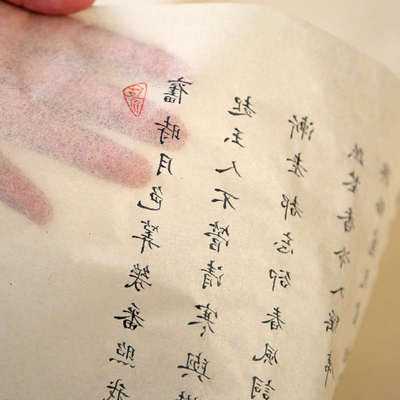 舊時月色算幾番照我
起玉人不管清寒與
漸老都忘卻春風詞
花香冷入瑤席